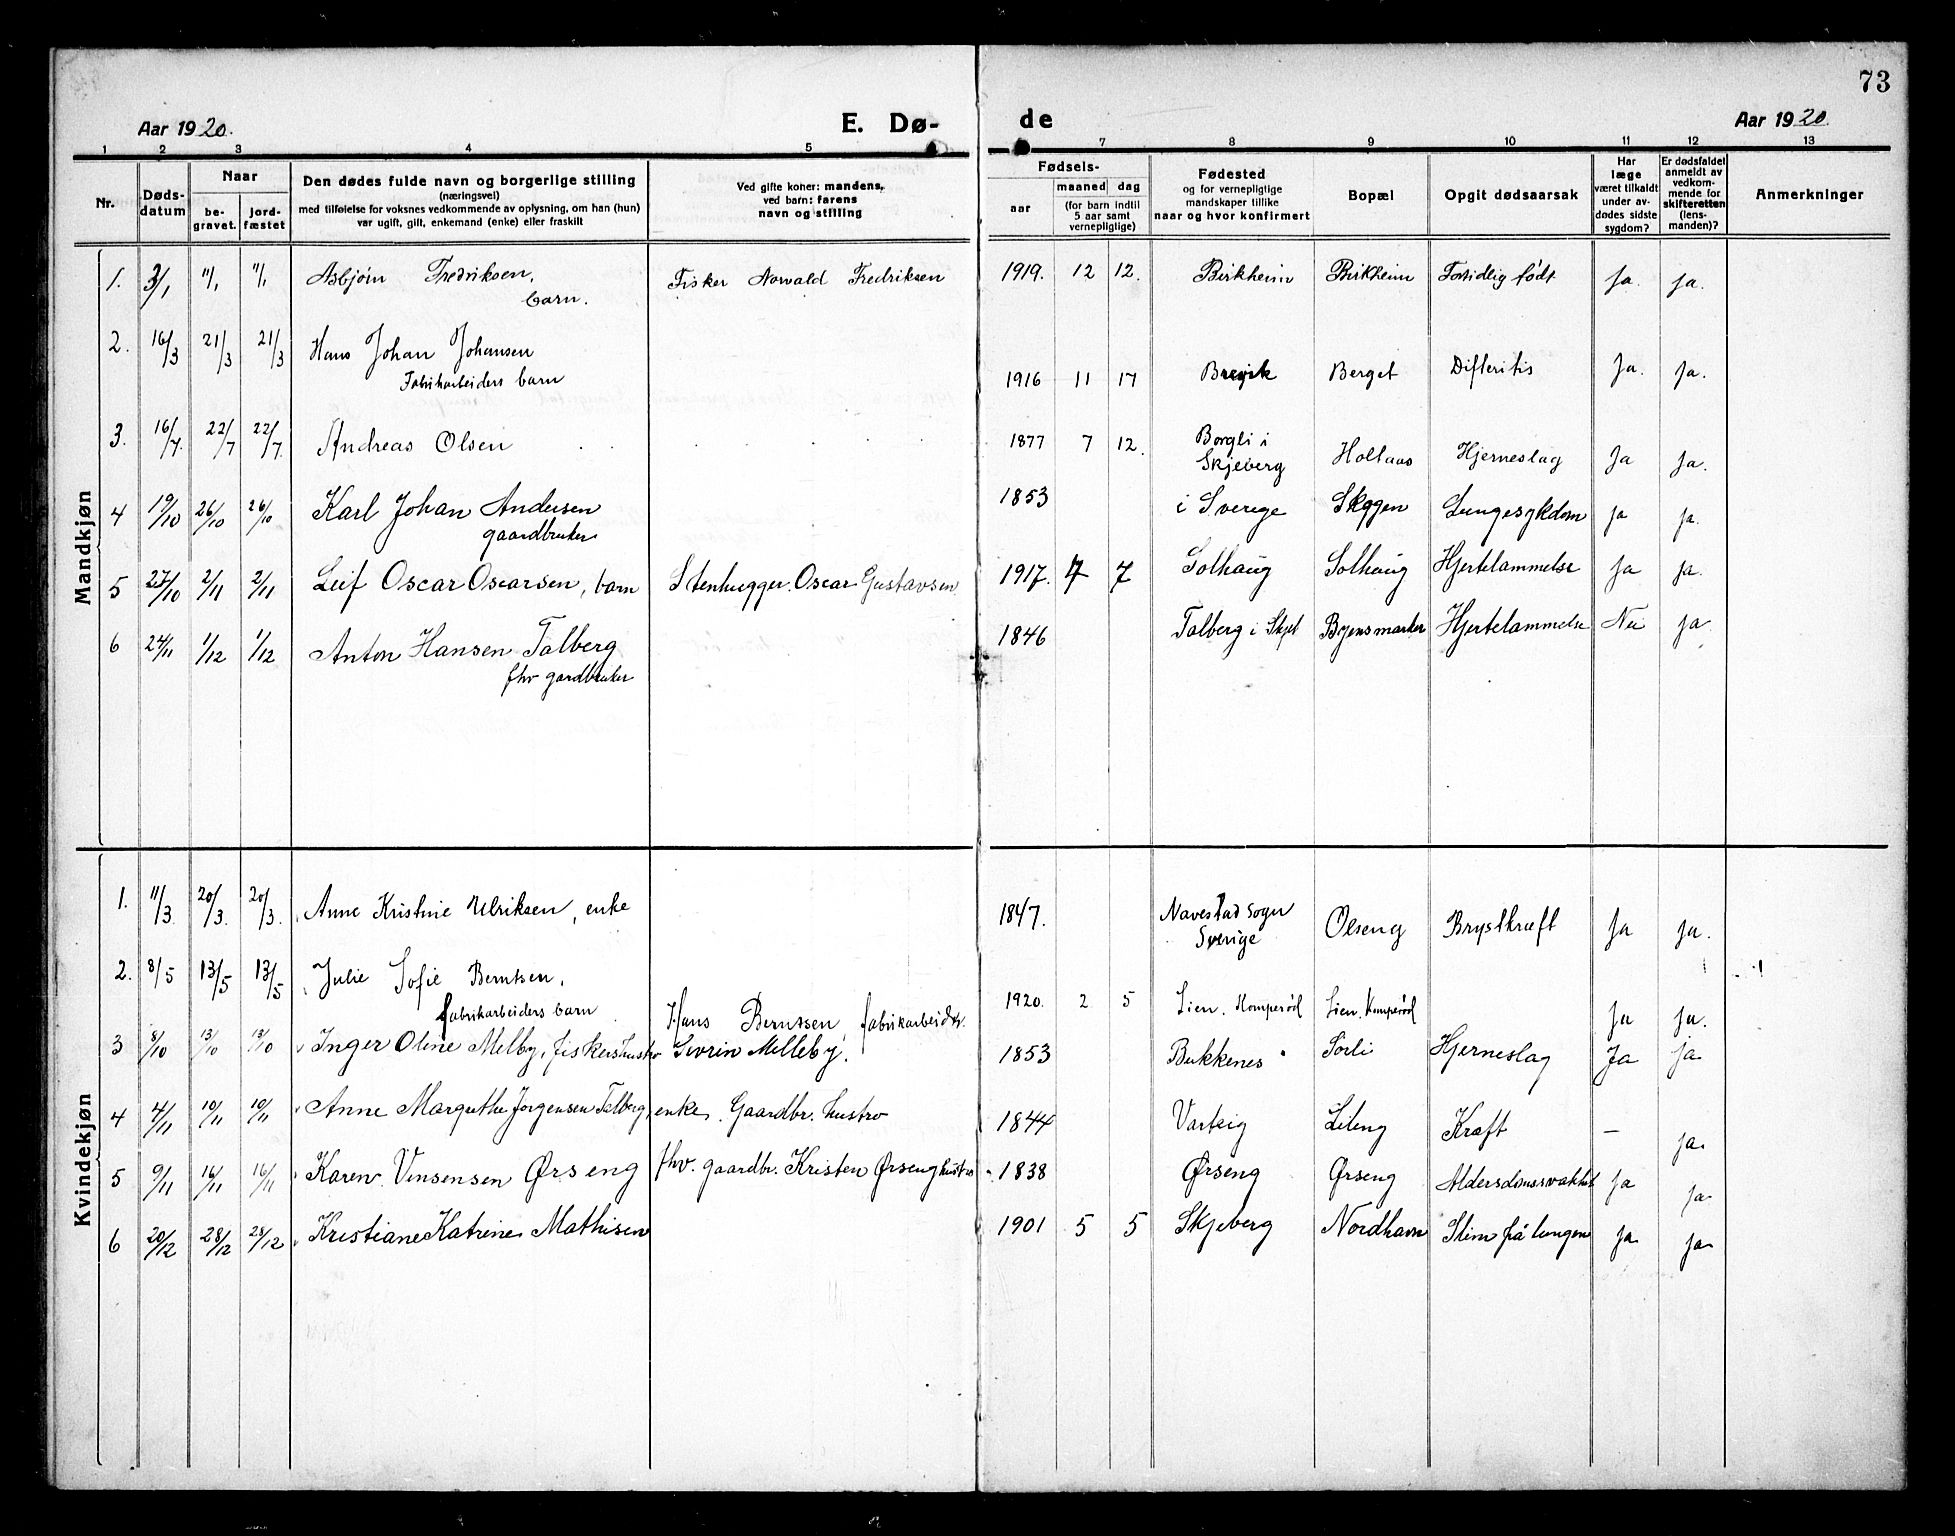 73
Aar 1920.
E. Dø-
de
Aar 1920.
1 2 3 4 5 7 8 9 10 11 12 13
Nr.
Døds-
datum
Naar
be-
gravet.
jord-
fæstet
Den dødes fulde navn og borgerlige stilling
(næringsvei)
med tilføielse for voksnes vedkommende av oplysning, om han (hun)
var ugift, gift, enkemand (enke) eller fraskilt
Ved gifte koner: mandens,
ved barn: farens
navn og stilling
Fødsels-
aar
maaned
dag
(for barn indtil
5 aar samt
vernepligtige)
Fødested
og for vernepligtige
mandskaper tillike
naar og hvor konfirmert
Bopæl
Opgit dødsaarsak
Har
læge
været tilkaldt
under av-
dødes sidste
sygdom?
Er dødsfaldet
anmeldt av
vedkom-
mende for
skifteretten
(lens-
manden)?
Anmerkninger
Mandkjøn
1. 3/1 11/1 11/1 Asbjørn Fredriksen, Fisker Norvald Fredriksen 1919. 12 12. Birkheim Birkheim Fortidlig født Ja. Ja.
barn.
2. 16/3 21/3 21/3 Hans Johan Johansen
Fabrikarbeiders barn 1916 11 17 Brevik Berget Difteritis Ja. Ja.
3. 16/7. 22/7 22/7. Andreas Olsen 1877 7 12. Borgli i
Skjeberg Holtaas Hjerneslag Ja Ja.
4 19/10 26/10 26/10 Karl Johan Andersen 1853 i Sverige Skggen Lungesykdom Ja Ja.
gaardbruker
5 27/10 2/11 2/11 Leif Oscar Oscarsen, barn Stenhugger. Oscar Gustavsen 1917. 7 7 Solhaug Solhaug Hjertelammelse Ja Ja.
6 24/11 1/12 1/12 Anton Hansen Talberg 1846 Talberg i Skjeb Byensmarker Hjertelammelse Nei Ja
fhv gardbruker
Kvindekjøn
1. 11/3 20/3. 20/3. Anne Kristine Ulriksen, enke 1847. Navestad Sogn
Sverige Olseng Brystkræft Ja Ja.
2. 8/5 13/5 13/5 Julie Sofie Berntsen,
fabrikarbeiders barn Hans Berntsen, fabrikarbeider. 1920. 2 5 Lien. Komperød Lien. Komperød Ja Ja.
3 8/10 13/10 13/10 Inger Oline Melby, fiskershustro Sevrin Melleby. 1853 Bukkenes Sorli Hjerneslag Ja Ja
4 4/11 10/11 10/11 Anne Margrethe Jørgensen Talberg, enke. Gaardbr. hustro 1844 Varteig Lileng Kræft — Ja.
5 9/11 16/11 16/11 Karen Vinsensen Ørseng fhv. gaardbr. Kristen Ørseng hustro 1838 Ørseng Ørseng Aldersdomssvakhet Ja Ja
6 20/12 28/12 28/12 Kristiane Katrine Mathisen 1901 5 5 Skjeberg Nordhavn Slim på lungen Ja Ja